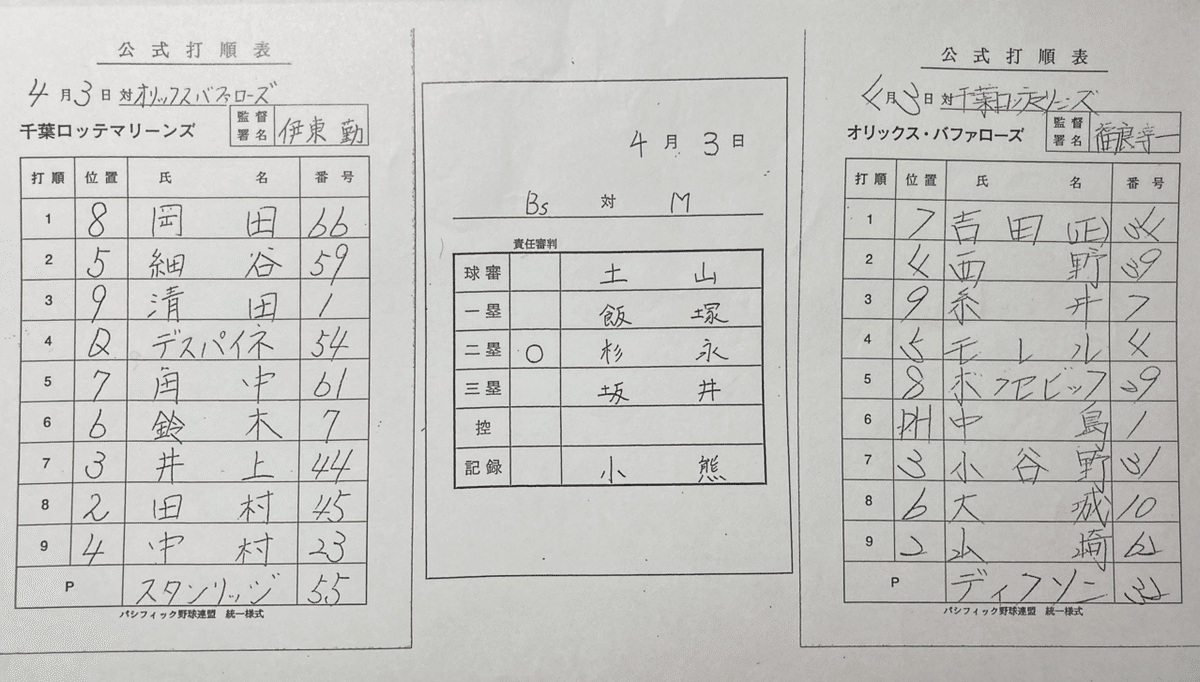 公式打順表
4月3日対オリックスバファローズ
千葉ロッテマリーンズ 監督署名 伊東 勤
打順 位置 氏名 番号
1 8 岡田 66
2 5 細谷 59
3 9 清田 1
4 D デスパイネ 54
5 7 角中 61
6 6 鈴木 7
7 3 井上 44
8 2 田村 45
9 4 中村 23
P スタンリッジ 55
パシフィック野球連盟 統一様式
4月3日
Bs 対 M
責任審判
球審 土山
一塁 飯塚
二塁 ○ 杉永
三塁 坂井
控
記録 小熊
公式打順表
4月3日対千葉ロッテマリーンズ
オリックス・バファローズ 監督署名 福良淳一
打順 位置 氏名 番号
1 7 吉田(正) 34
2 4 西野 39
3 9 糸井 7
4 5 モレル 4
5 8 ボグセビック 29
6 DH 中島 1
7 3 小谷野 31
8 6 大城 10
9 2 山崎 62
P ディクソン 32
パシフィック野球連盟 統一様式